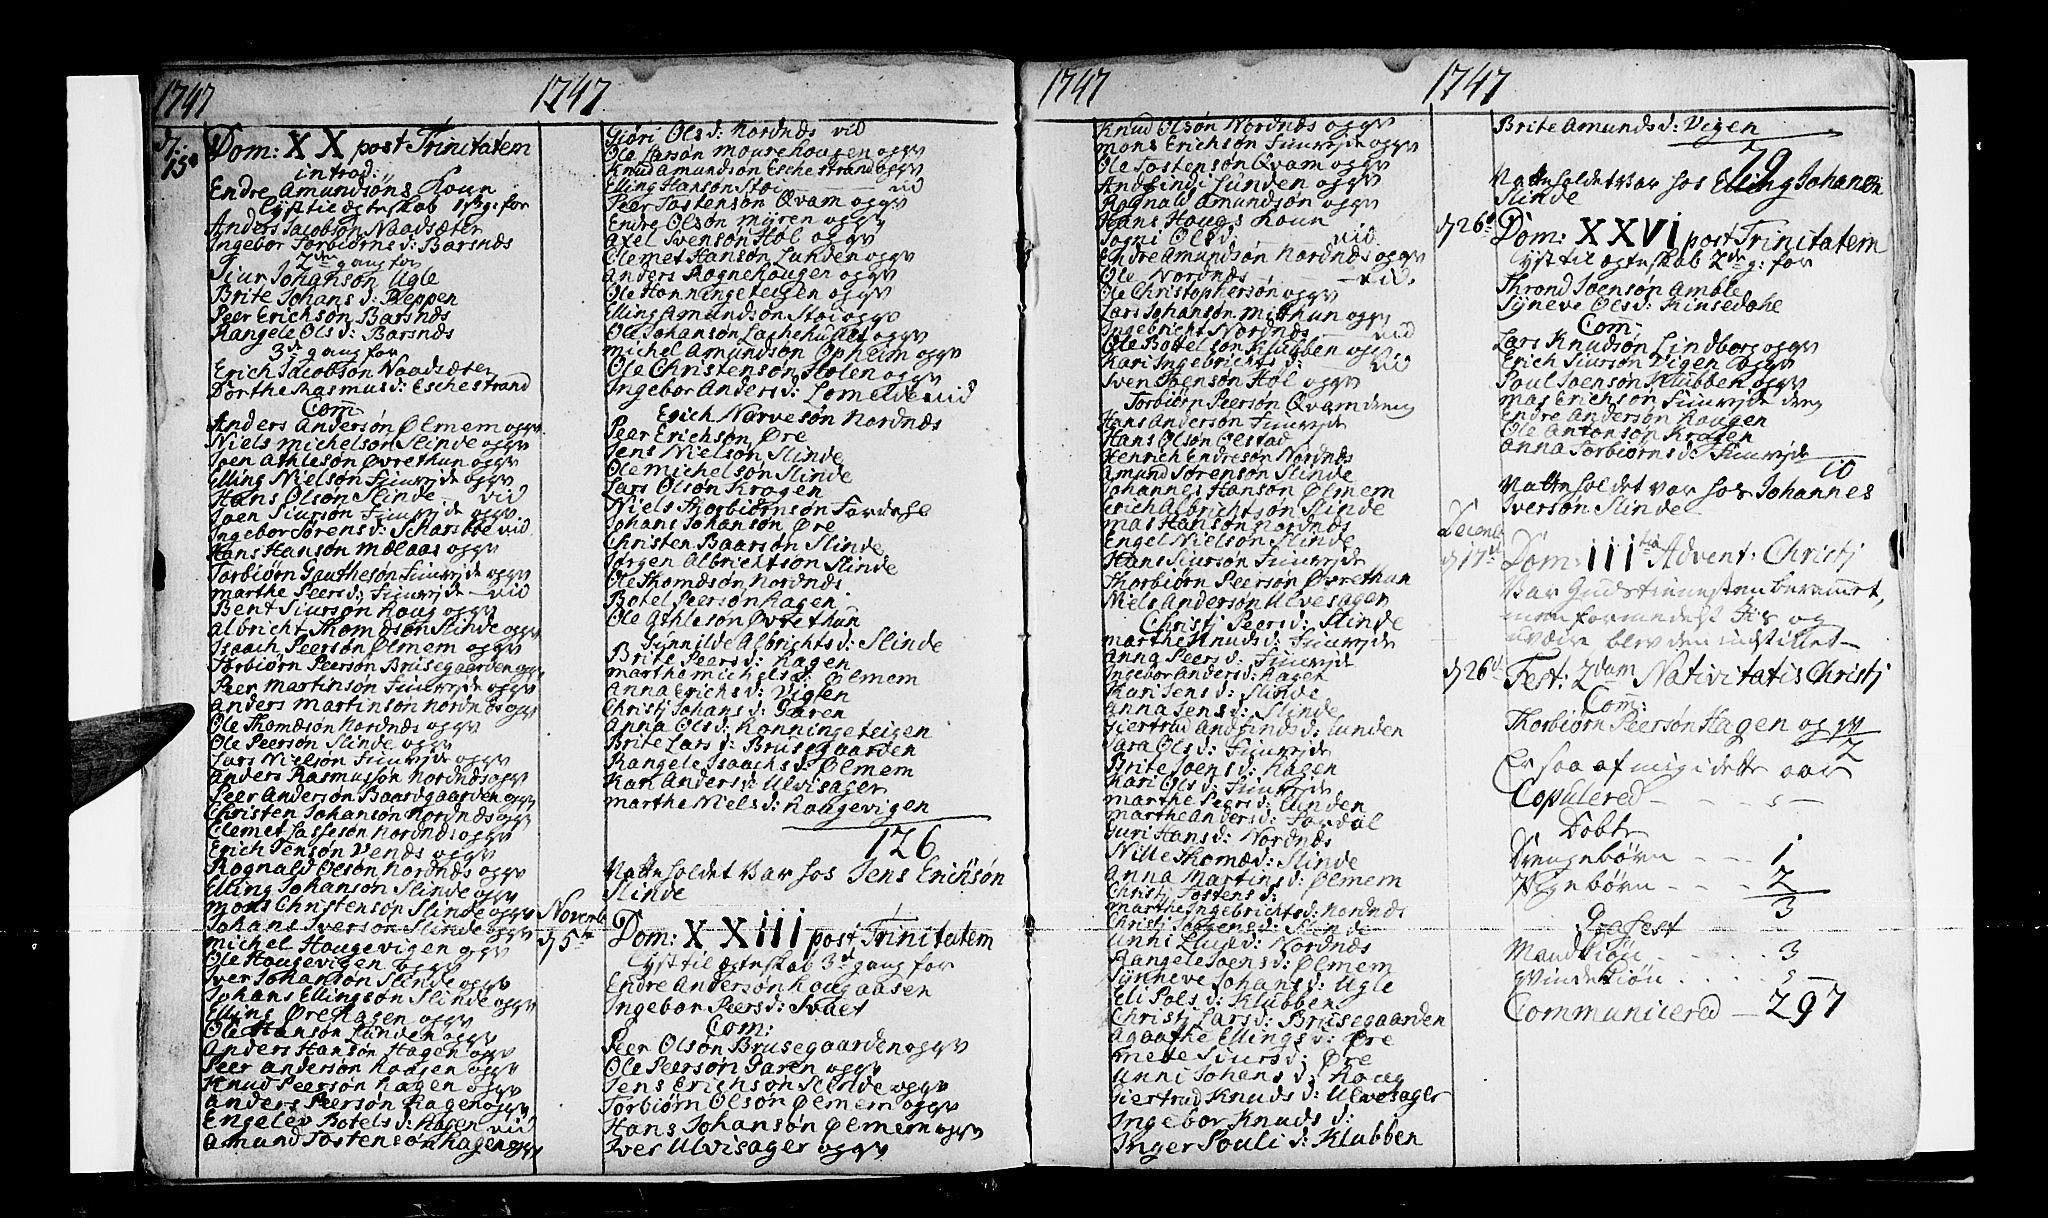 1747
1747
D. 15de
Dom: XX post Trinitatem
introd:
Endre Amundsøns Koun
Lyst til ægteskab 1ste g: for
Anders Jacobsøn Naadsæter
Ingebor Torbiørns d: Barsnæs
2den gang for
Siur Johansøn Ugle
Brite Johans d: Reppen
Peer Erichsøn Barsnæs
Rangele Ols d: Barsnæs
3de gang for
Erich Jacobsøn Naadsæter
Dorthe Rasmus d: Eschestrand
Com:
Anders Andersøn Ølmem og gv
Niels Michelsøn Slinde og gv
Joen Athlesøn Øvrethun og gv
Elling Nielsøn Fimrejde og gv
Hans Olsøn Slinde - vid
Joen Siursøn Fimrejde og gv
Ingebor Sørens d: vid
Hans Hansøn Mælaas og gv
Torbiørn Gauthesøn Fimrejde og gv
Marthe Peers d: Fimrejde - vid
Bent Siursøn Houg og gv
Albricht Thomæsøn Slinde og gv
Isaach Peersøn Ølmem og gv
Torbiørn Peersøn Brusegaarden og gv
Peer Martinsøn Fimrejde og gv
Anders Martinson Nordnæs og gv
Ole Thomæsøn Nordnæs og gv
Ole Peersøn Slinde og gv
Lars Nielsøn Fimrejde og gv
Anders Rasmussøn Nordnæs og gv
Peer Andersøn Baardgaarden og gv
Christen Johansøn Nordnæs og gv
Clemet Lassesøn Nordnæs og gv
Erich Jensøn Vends og gv
Rognald Olsøn Nordnæs og gv
Elling Johansøn Slinde og gv
Mons Christensøn Slinde og gv
Johans Iversøn Slinde og gv
Michel Hougevigen og gv
Ole Hougevigen og gv
Iver Johansøn Slinde og gv
Johans Ellingsøn Slinde og gv
Elling Ørehagen og gv
Ole Hansøn Lunden og gv
Anders Hansøn Hagen og gv
Peer Andersøn Haagen og gv
Knud Peersøn Hagen og gv
Anders Peersøn Hagen og gv
Engelev Botels d: Hagen vid
Amund Tostensøn Hagen og gv
Giøri Ols d: Nordnæs vid
Ole Larsøn Mourehougen og gv
Knud Amundsøn Eschestrand og gv
Elling Hansøn Stoi - vid
Peer Tostensøn Qvam og gv
Endre Olsøn Myren og gv
Axel Svensøn Hol og gv
Clemet Hansøn Lunden og gv
Anders Rognehougen og gv
Ole Honningeteigen og gv
Elling Amundsøn Stoi og gv
Ole Johansøn og gv
Michel Amundsøn Opheim og gv
Ole Christensøn Holen og gv
Ingebor Anders d: Lomelde vid
Erich Narvesøn Nordnæs
Peer Erichsøn Øre
Jens Nielsøn Slinde
Ole Michelsøn Slinde
Lars Olsøn Kragen
Niels Thorbiørnsøn
Johans Johansøn Øre
Christen Baarsøn Slinde
Jørgen Albrichtsøn Slinde
Ole Thomæsøn Nordnæs
Botel Peersøn Hagen
Ole Athlesøn Øvrethun
Gunnilde Albrichts d: Slinde
Brite Peers d: Hagen
Marthe Michels d: Ølmem
Anna Erichs d: Vigen
Christj Johans d: Garen
Anna Ols d: Honningeteigen
Brite Lars d: Brusegaarden
Rangele Isaachs d: Ølmem
Kari Anders d: Ulvisager
Marthe Niels d: Hougevigen
126
Natteholdet var hos Jens Erichsøn
Slinde
Novemb:
D. 5te
Dom: XXiii post Trinitatem
Lyst til ægteskab 3de gang for
Endre Andersøn Hougaasen
Ingebor Peers d: Svaet
Com:
Peer Olsøn Brusegaarden og gv
Ole Peersøn Garen og gv
Jens Erichsøn Slinde og gv
Torbiørn Olsøn Ølmem og gv
Hans Johansøn Ølmem og gv
Iver Ulvisager og gv
1747
1747
Knud Olsøn Nordnæs og gv
Mons Erichsøn Fimrejde og gv
Ole Tostensøn Qvam og gv
Andfind Lunden og gv
Rognald Amundsøn og gv
Hans Hougs Koun
Sogni Ols d: - vid
Endre Amundsøn Nordnæs og gv
Ole Nordnæs - vid
Ole Christophersøn og gv
Lars Johansøn Midthun og gv
Ingebricht Nordnæs - vid
Ole Botelsøn Klubben og gv
Kari Ingebrichts d: - vid
Sven Joensøn Hol og gv
Torbiørn Peersøn Qvam dreng
Hans Andersøn Fimrejde
Hans Olsøn Olstad
Henrich Endresøn Nordnæs
Amund Sørensøn Slinde
Johannes Hansøn Ølmem
Erich Albrichtsøn Slinde
Mas Hansøn Nordnæs
Engel Nielsøn Slinde
Hans Siursøn Fimrejde
Thorbiørn Peersøn Øvrethun
Niels Andersøn Ulvesager
Christj Peers d: Slinde
Marthe Knuds d: Fimrejde
Anna Peers d: Fimrejde
Ingebor Anders d: Hagen
Kari Jens d: Slinde
Anna Jens d: Slinde
Giertrud Andfinds d: Lunden
Sara Ols d: Fimrejde
Brite Joens d: Hagen
Kari Ols d: Fimrejde
Marthe Peers d: Lunden
Marthe Anders d: Fardal
Guri Hans d: Nordnæs
Nille Thomæ d: Slinde
Anna Martins d: Ølmem
Christj Tostens d:
Marthe Ingebrichts d: Nordnæs
Christj Jørgens d: Slinde
Unni d: Nordnæs
Rangele Joens d: Ølmem
Synneve Johans d: Ugle
Eli Pols d: Klubben
Christj Lars d: Brusegaarden
Agaathe Ellings d: Øre
Mette Siurs d: Øre
Unni Johans d: Houg
Giertrud Knuds d: Ulvesager
Ingebor Knuds d:
Inger Pouli d: Klubben
Brite Amunds d: Vigen
79
Natteholdet var hos Elling Johansøn
Slinde
D. 26de
Dom: XXVi post Trinitatem
Lyst til ægteskab 2den g: for
Thrond Joensøn Amble
Syneve Ols d: Kinsedahl
Com:
Lars Knudsøn Lindborg og gv
Erich Siursøn Vigen og gv
Poul Joensøn Klubben og gv
Mas Erichsøn Fimrejde dreng
Endre Andersøn Haagen
Ole Antonsøn Kragen
Anna Torbiørns d: Fimrejde
10
Natteholdet var hos Johannes
Iversøn Slinde
Decemb:
D. 17de
Dom: iiitia Advent: Christj
Var Gudstienesten berammet,
men formedelst Iis og
uvæire blev den indstillet -
D. 26de
Fest: 2dam Nativitatis Christj
Com:
Thorbiørn Peersøn Hagen og gv
2
Er saa af mig i dette aar
Copulered - - - 5 -
Døbt
Drengebørn - - - 1
Pigebørn - - - 2
3
Grafest
Mandkiøn . . . . 3
Qvindekiøn . . . . 5 -
Communicered - 297